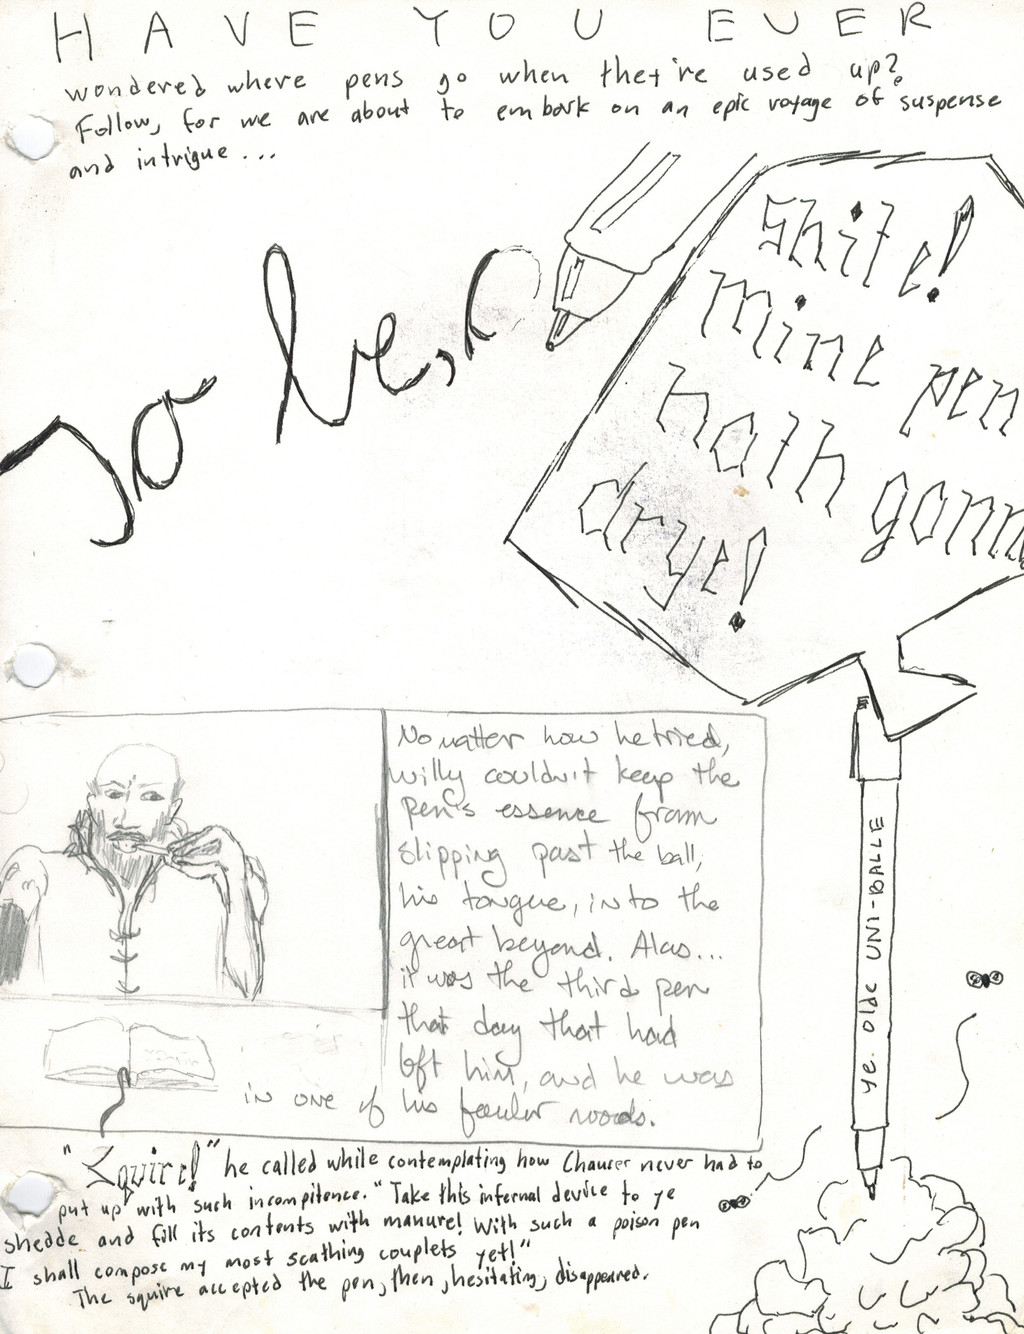 HAVE YOU EVER
wondered where pens go when they're used up?
Follow, for we are about to embark on an epic voyage of suspense
and intrigue...
To be,
Shite!
mine pen
hath gonn
drye!
No matter how he tried,
Willy couldn't keep the
pen's essence from
slipping past the ball,
his tongue, into the
great beyond. Alas...
it was the third pen
that day that had
left him, and he was
in one of his fouler moods.
YE. Olde UNI-BALLE
"Squire!" he called while contemplating how Chaucer never had to
put up with such incompitence. "Take this infernal device to ye
shedde and fill its contents with manure! With such a poison pen
I shall compose my most scathing couplets yet!"
The squire accepted the pen, then, hesitating, disappeared.